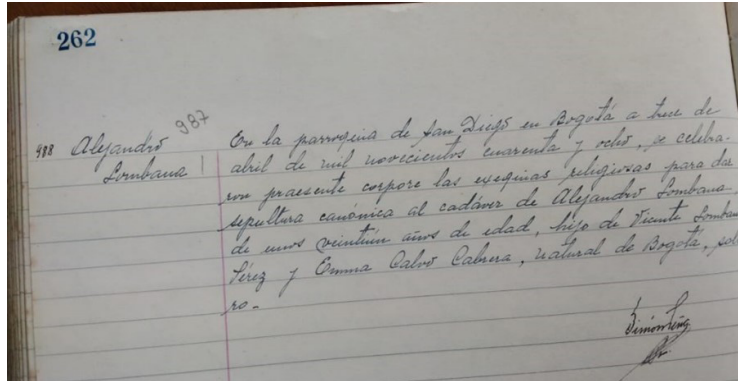 262
987
988 Alejandro
Lombana
En la parroquia de San Diego en Bogotá a trece de
abril de mil novecientos cuarenta y ocho, se celebra-
ron praesente corpore las exequias religiosas para dar
sepultura canónica al cadáver de Alejandro Lombana
de unos veintiún años de edad, hijo de Vicente Lomban
Pérez y Emma Calvo Cabrera, natural de Bogotá, solt
ro-
Simón